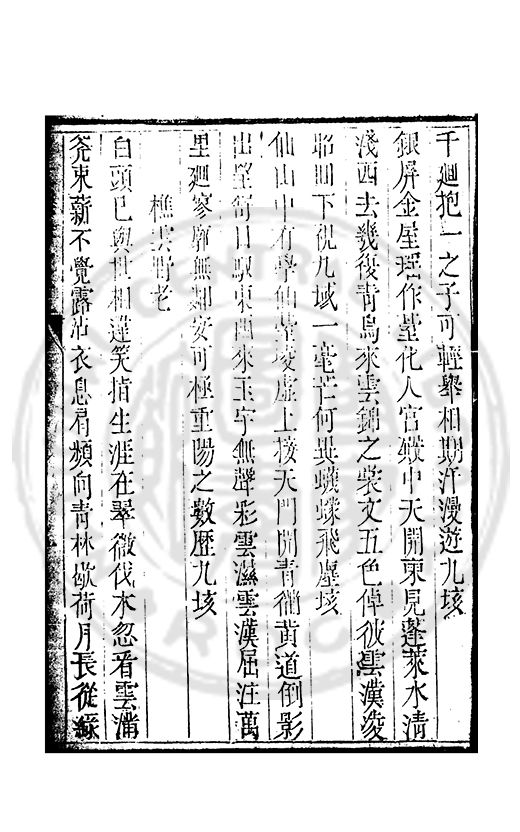 千廻抱一之子可輕舉相期汗漫遊九垓
銀屏金屋瑶作臺化人宮殿中天開東見蓬萊水清
淺西去幾復青鳥來雲錦之裳文五色倬彼雲漢淩
昭回下視九域一毫芒何異蠛蠓飛塵垓
仙山中有學仙臺凌虛上接天門開青衢黃道倒影
出望舒日馭東西來玉宇無聲彩雲濕雲漢屈注萬
里廻寥廓無類安可極重陽之數歴九垓
樵雲野老
白頭已與世相違笑指生涯在翠微伐木忽看雲滿
斧束薪不覺露沾衣息肩頻向青林歇荷月長從